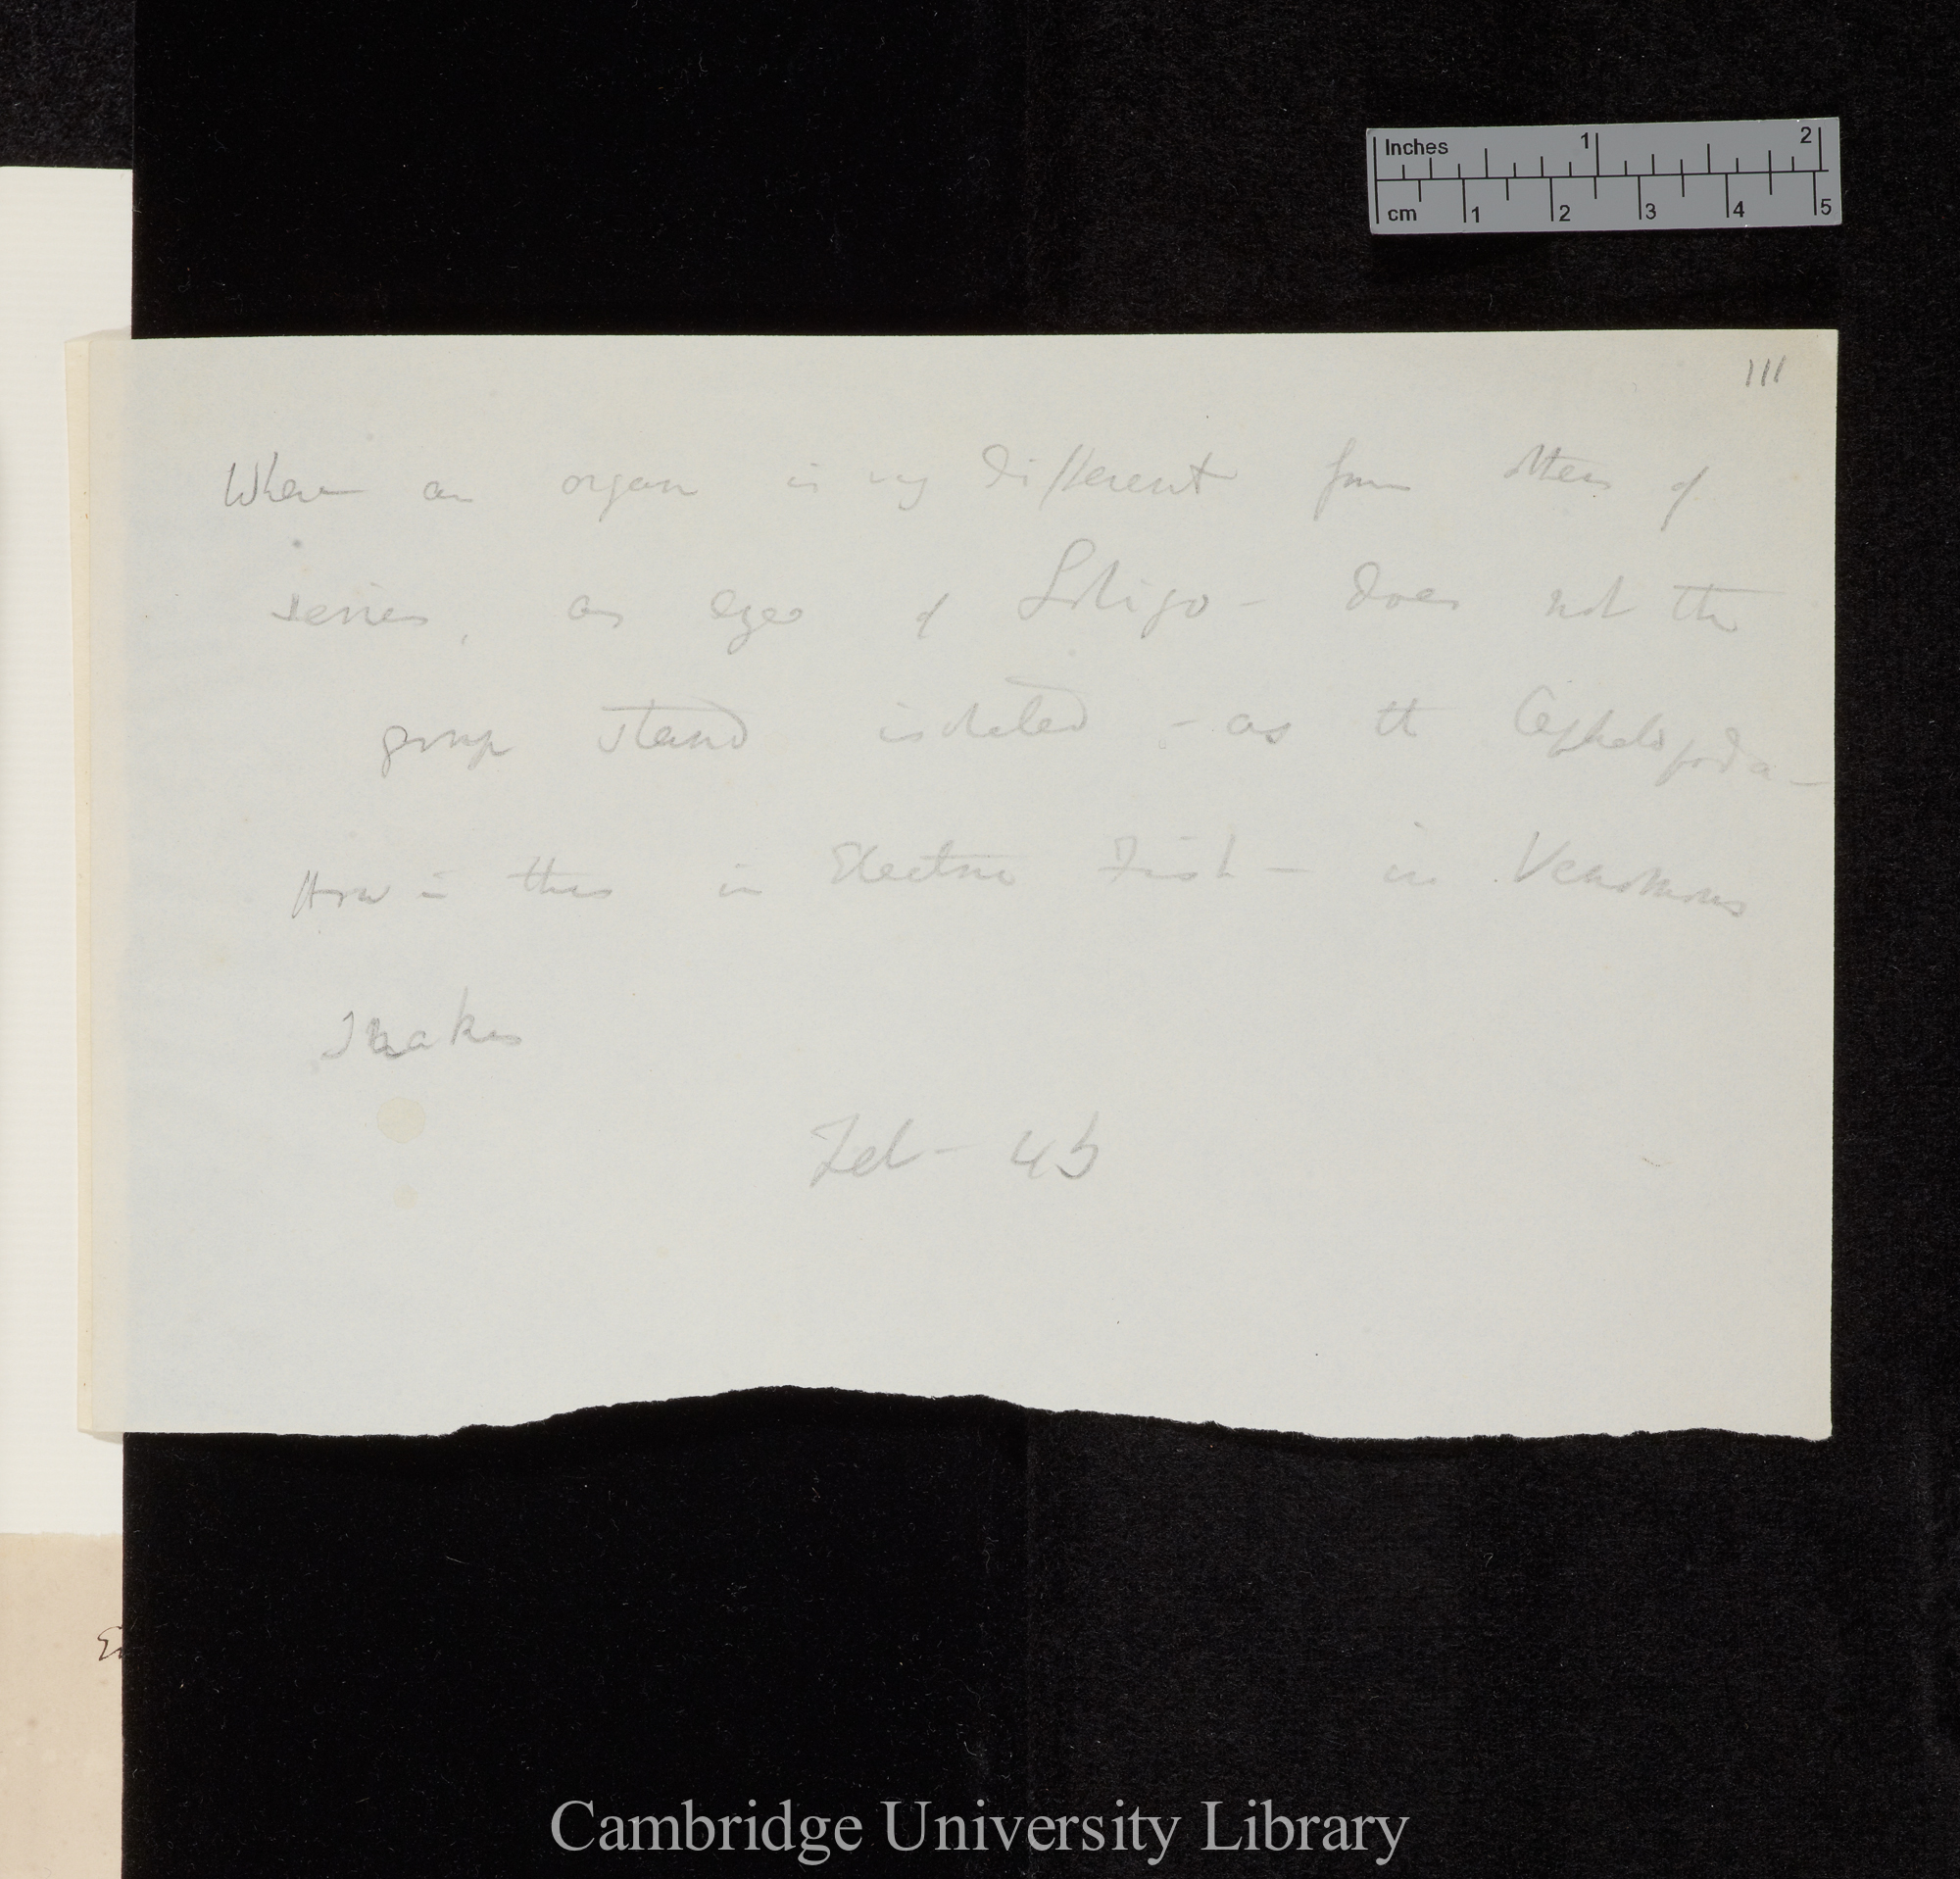 Inches 1 2
cm 1 2 3 4 5
111
When an organ is very different from others of
series, as eyes of Loligo – does not the
group stand isolated – as the Cephalopoda –
How is this in Electric Fish – in Venomous
Snakes
Feb – 45
Cambridge University Library